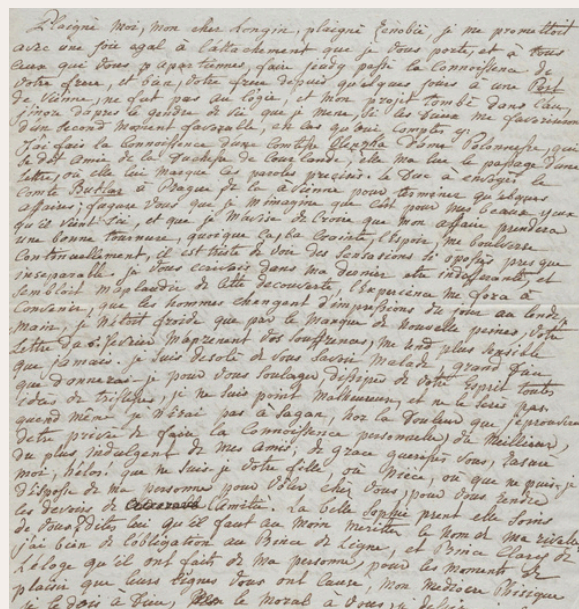 Plaigné moi, mon cher Longin, plaigné Zénobie, je me promettoit
avec une joie agal à l'attachement que je vous porte, et à tous
ceux qui vous y apartiennes, faire jeudy passé la connoissence de
votre frere, et bien, votre frere depuis quelques jours à une
de Vienne, ne fut pas au logie, et mon projet tombé dans l'eau,
j'inore d'après le gendre de vie que je mene, si les Dieux me favoriseron
d'un second moment favorable, en cas qu'oui comptés y.
J'ai fais la connoissence d'une Comtesse Olenska Dame Polonnoise, qui
se dit amie de la Duchesse de Courlande, elle ma lue le passage d'une
lettre, où elle lui marque ces paroles precises. le Duc à envoyés le
Comte à Prague, de la à Vienne pour terminer quelques
affaires, figuré vous que je m'imagine que c'est pour mes beaux yeux
qu'il vient ici, et que je m'avise de Croire que mon affair prendera
une bonne tournure, quoique ça, la crainte, l'espoir, me boulverse
Continuellement, il est triste de voir des sensations si oposés presque
inseparable. je vous ecrivais dans ma dernier etre indifferante, et
semblait m'aplaudir de cette decouverte, l'experience me forca à
Convenir, que les hommes changent d'impressions du jour au lende-
main, je n'étoit froide que par le manque de nouvelle peines, votre
lettre du 8 fevrier m'aprenent vos souffrences, me rend plus sensible
que jamais. je suis desolé de vous savoir malade, grand Dieu
que donnerai-je pour vous soulager, dissiper de votre esprit toutes
idées de tristesses, je ne suis point malheureuse, et ne le serés pas
quend même je n'irai pas à Sagan, hor la Douleur que j'eprouverai
d'etre privée de faire la Connoissence personnelle, du meilleur,
du plus indulgent de mes amis, de grace guerissés vous,
moi, hélos! que ne suis-je votre fille, ou Nièce, ou que ne puis-je
d'isposse de ma personne pour voler chez vous, pour vous rendre
les devoirs de l'amitié. La belle Sophie prent elle soins
de vous, dites lui qu'il faut au moin meritter le nom de ma rivale
j'ai bien de l'obligation au Prince de Ligne, et Prince Clary de
l'éloge qu'il ont faits de ma personne, pour les moments de
plaisir que leurs lignes vous ont causé, mon mediocre Phisique
je le dois à Dieu, le moral à vous,